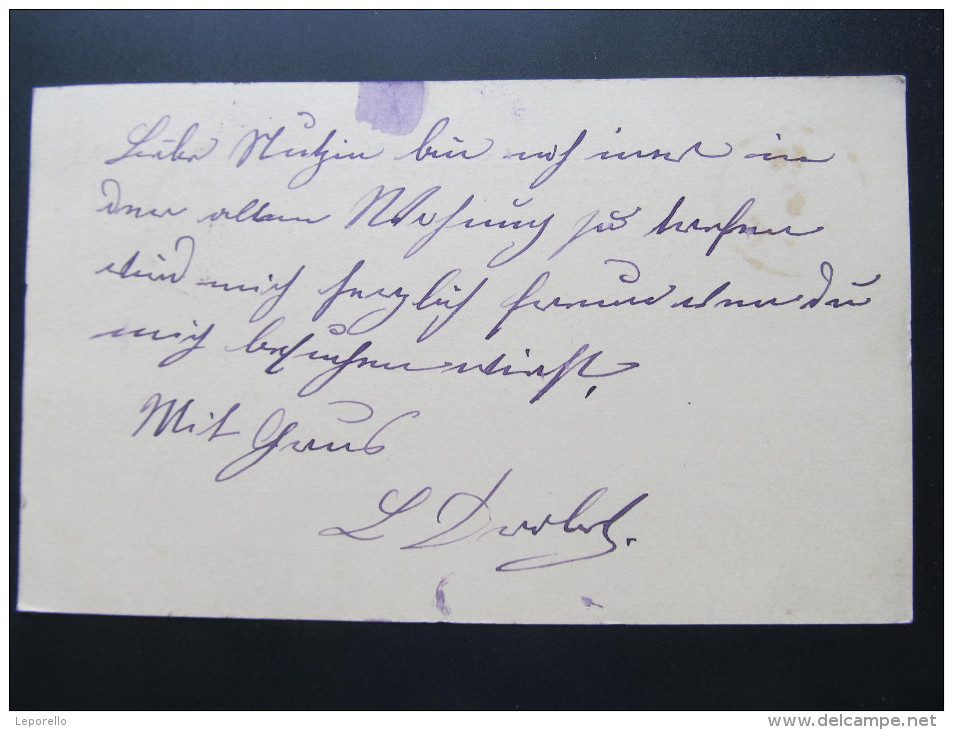 Liebe Mutzin bin noch imer in
der alten Wohung zu trefen
wird mich herzlich freuen wen du
mich besuchen wirst.
Mit Grus
L
Leporello
www.delcampe.net